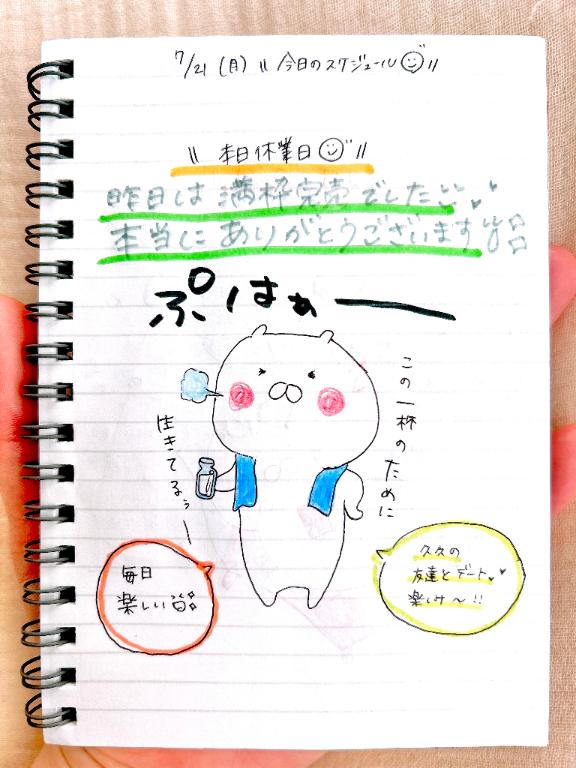 7/21 (月) 〃 今日のスケジュール 〃
〃 本日休業日 〃
昨日は満枠完売でした
本当にありがとうございます
ぷはぁー
この一杯のために
生きてるぅー
毎日
楽しい
久々の
友達とデート
楽しみ〜!!